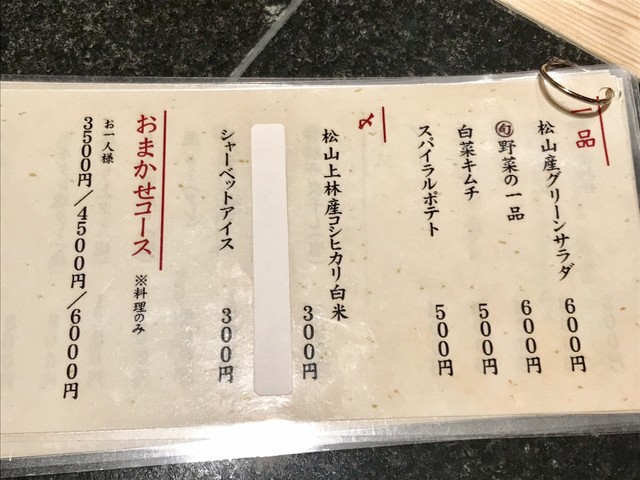 一品
松山産グリーンサラダ 600円
旬野菜の一品 600円
白菜キムチ 500円
スパイラルポテト 500円
〆
松山上林産コシヒカリ白米 300円
シャーベットアイス 300円
おまかせコース ※料理のみ
お一人様
3500円/4500円/6000円